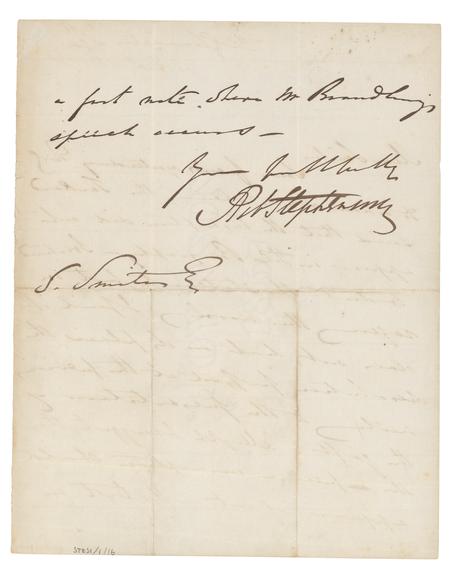 a foot note where Mr Brandling's
speech occurs —
Yours faithfully
Rob Stephenson
S. Smiles Esq
STESI/1/16